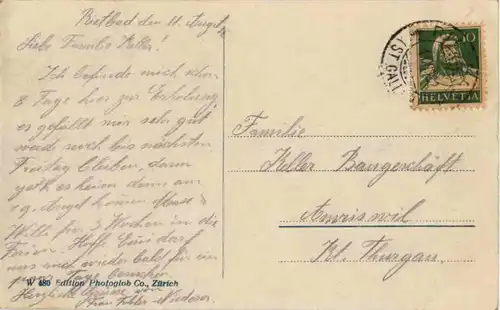 Rietbad den 11. Augst.
Liebe Familie Keller!
Ich befinde mich schon
8 Tage hier zur Erholung,
es gefällt mir sehr gut
werde noch bis nächsten
Freitag bleiben, dann
geht es heim denn am
19. Augst
Willi für 3 Wochen in die
Ferien. Hoffe
uns auch wieder bald für ein
paar Tage besuchen
Herzliche Grüsse von
Frau
W 480 Edition Photoglob Co., Zürich
10
HELVETIA
(ST. GALL
Familie
Keller Baugeschäft
Amriswil
Kt. Thurgau